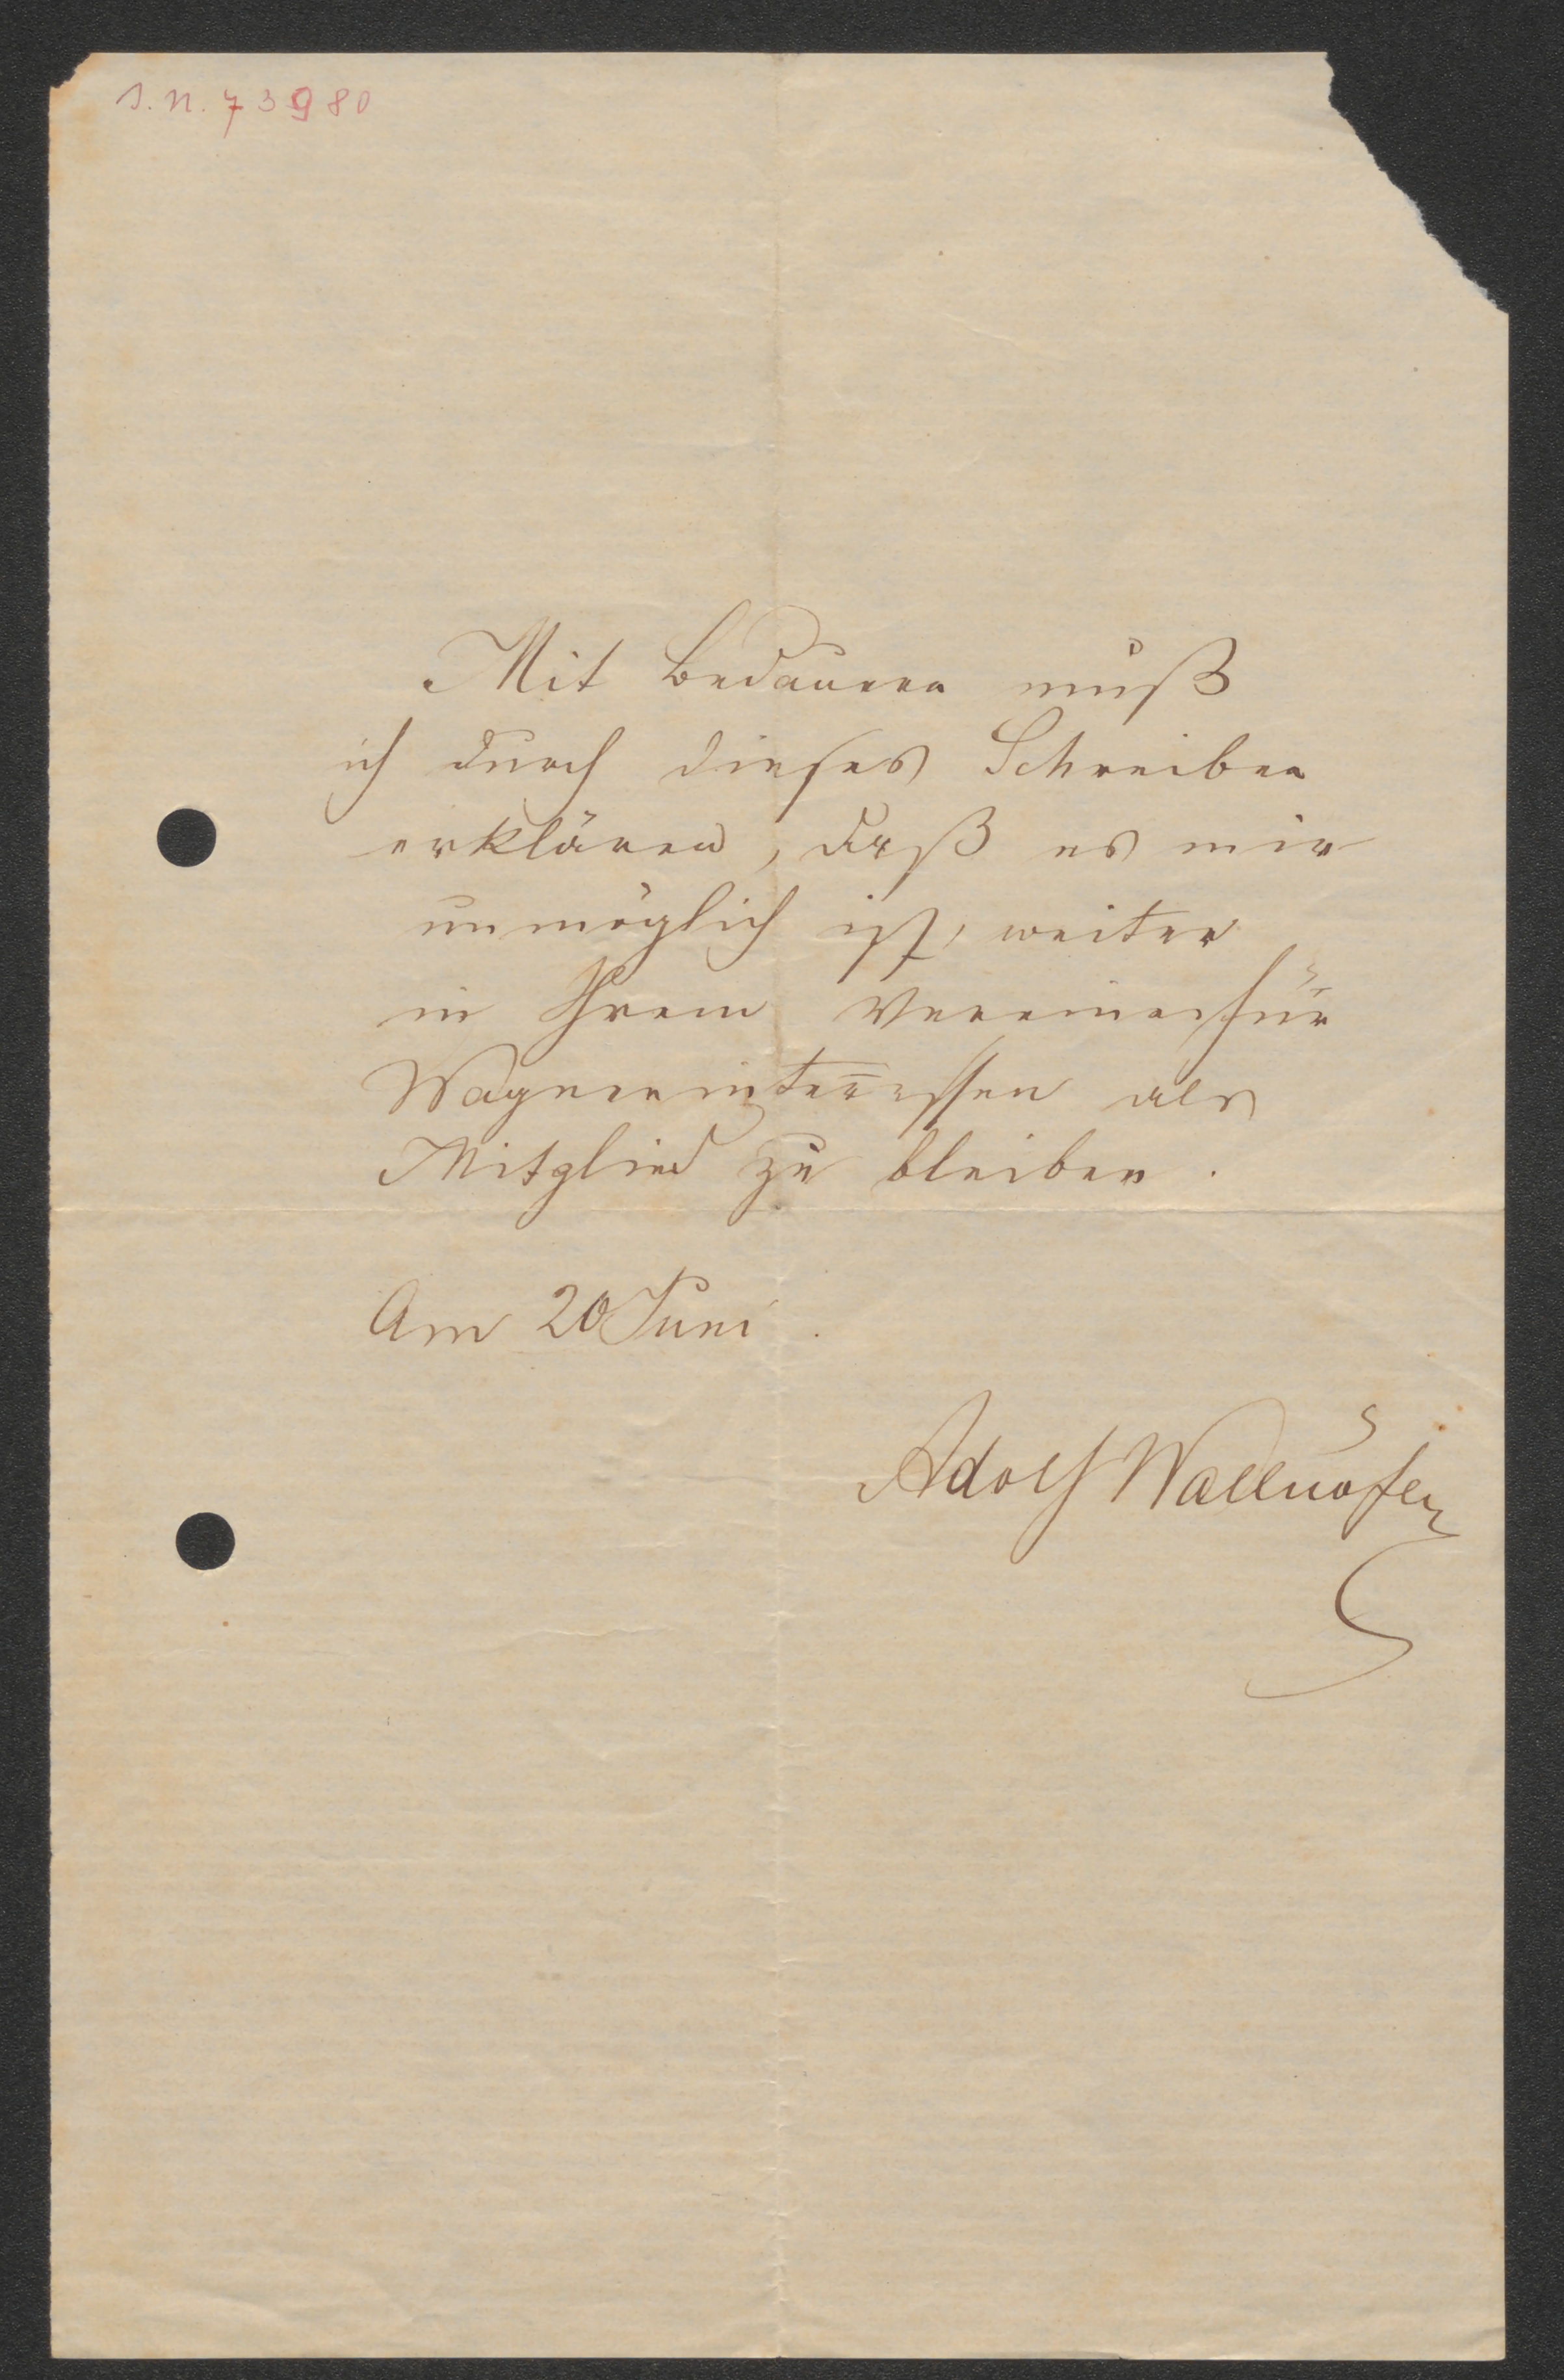 I. N. 73980
Mit Bedauern muß
ich durch dieses Schreiben
erklären, daß es mir
unmöglich ist, weiter
in Ihrem Vereine für
Wagnerinteressen als
Mitglied zu bleiben.
Am 20 Juni.
Adolf Wallnöfer